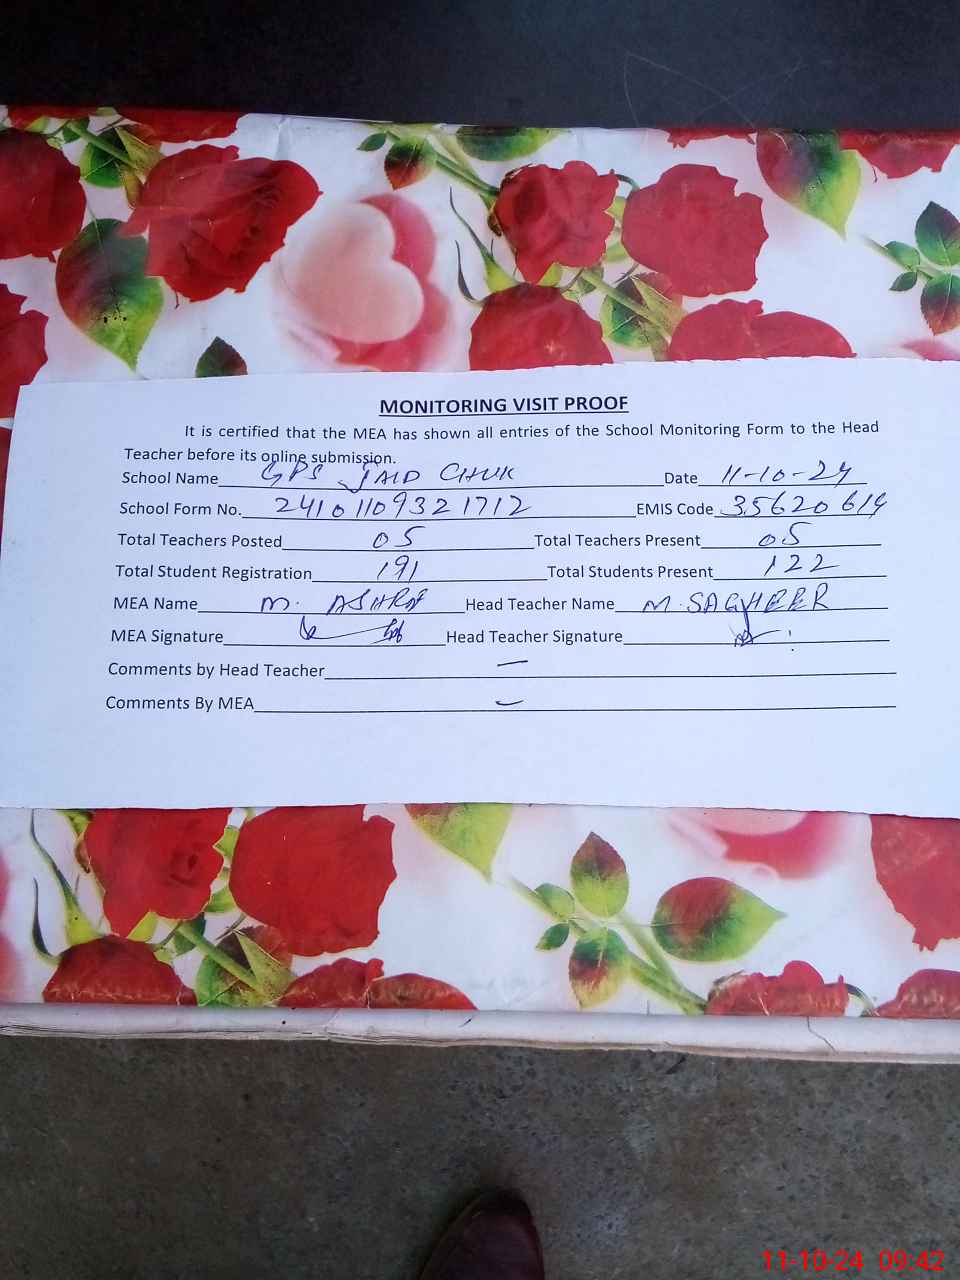 MONITORING VISIT PROOF
It is certified that the MEA has shown all entries of the School Monitoring Form to the Head
Teacher before its online submission.
School Name GPS JAID CHUK Date 11-10-24
School Form No. 2410110932 1712 EMIS Code 35620614
Total Teachers Posted 05 Total Teachers Present 05
Total Student Registration 191 Total Students Present 122
MEA Name M. ASHRAF Head Teacher Name M. SAGHEER
MEA Signature Head Teacher Signature
Comments by Head Teacher —
Comments By MEA —
11-10-24 09:42